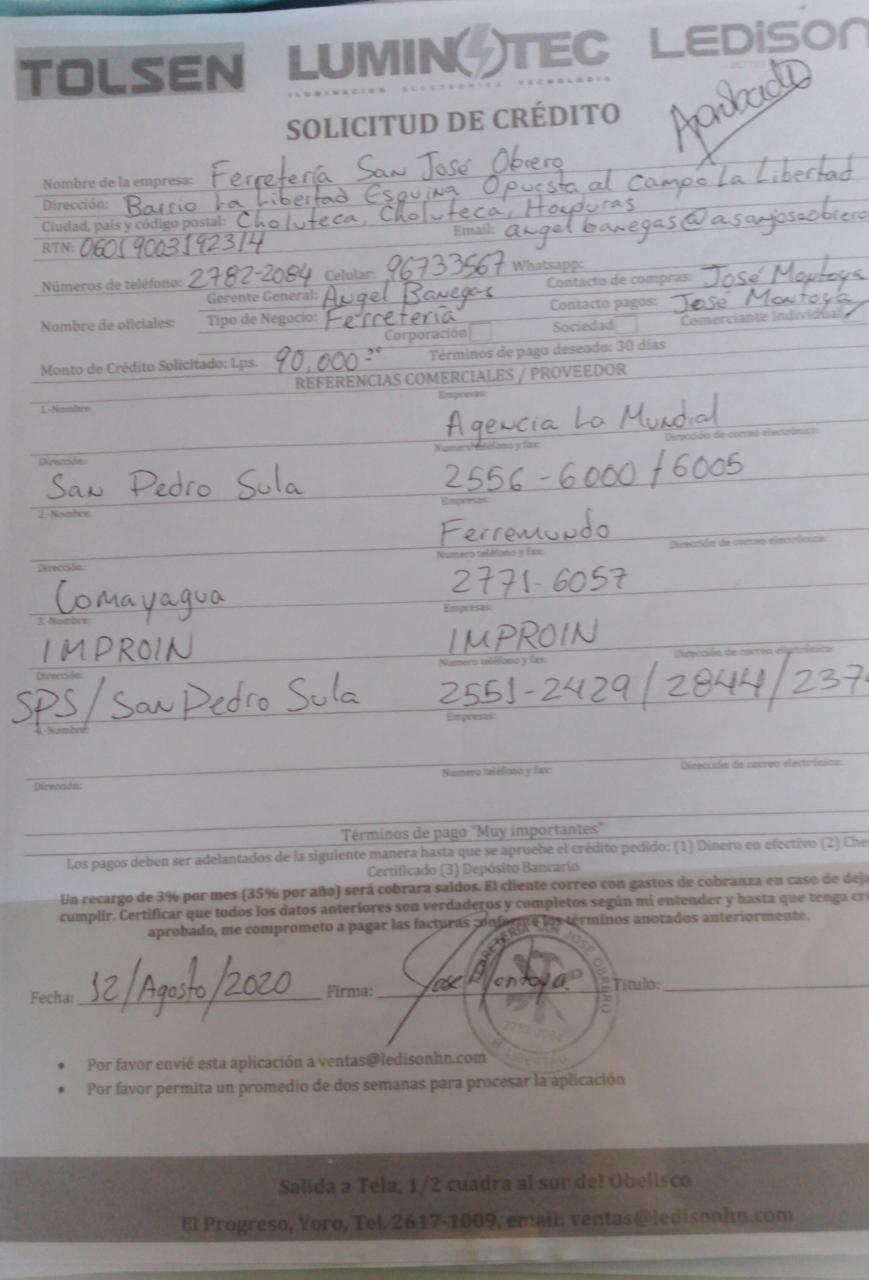 TOLSEN LUMINOTEC LEDISON
ILUMINACION ELECTRONICA TECNOLOGIA
SOLICITUD DE CRÉDITO
Aprobado
Nombre de la empresa: Ferretería San José Obrero
Dirección: Barrio La Libertad Esquina Opuesta al Campo La Libertad
Ciudad, país y código postal: Choluteca, Choluteca, Honduras
RTN: 06019003192314 Email: angelbanegas@asanjoseobrero
Números de teléfono: 2782-2084 Celular: 96733567 Whatsapp:
Gerente General: Angel Banegas Contacto de compras: José Montoya
Nombre de oficiales: Tipo de Negocio: Ferretería Contacto pagos: José Montoya
Corporación Sociedad Comerciante Individual
Monto de Crédito Solicitado: Lps. 90,000.00 Términos de pago deseado: 30 días
REFERENCIAS COMERCIALES / PROVEEDOR
1.-Nombre: Empresas:
Agencia La Mundial
Dirección: Numero teléfono y fax: Dirección de correo electrónico:
San Pedro Sula 2556-6000/6005
2.-Nombre: Empresas:
Ferremundo
Dirección: Numero teléfono y fax: Dirección de correo electrónico:
Comayagua 2771-6057
3.-Nombre: Empresas:
IMPROIN IMPROIN
Dirección: Numero teléfono y fax: Dirección de correo electrónico:
SPS/San Pedro Sula 2551-2429/2844/237
4.-Nombre: Empresas:
Dirección: Numero teléfono y fax: Dirección de correo electrónico:
Términos de pago "Muy importantes"
Los pagos deben ser adelantados de la siguiente manera hasta que se apruebe el crédito pedido: (1) Dinero en efectivo (2) Che
Certificado (3) Depósito Bancario
Un recargo de 3% por mes (35% por año) será cobrara saldos. El cliente correo con gastos de cobranza en caso de deja
cumplir. Certificar que todos los datos anteriores son verdaderos y completos según mi entender y hasta que tenga cre
aprobado, me comprometo a pagar las facturas conforme los términos anotados anteriormente.
Fecha: 12/Agosto/2020 Firma: Jose Montoya Titulo:
FERRETERIA SAN JOSE OBRERO
• Por favor envié esta aplicación a ventas@ledisonhn.com
• Por favor permita un promedio de dos semanas para procesar la aplicación
Salida a Tela, 1/2 cuadra al sur del Obelisco
El Progreso, Yoro, Tel. 2617-1009, email: ventas@ledisonhn.com